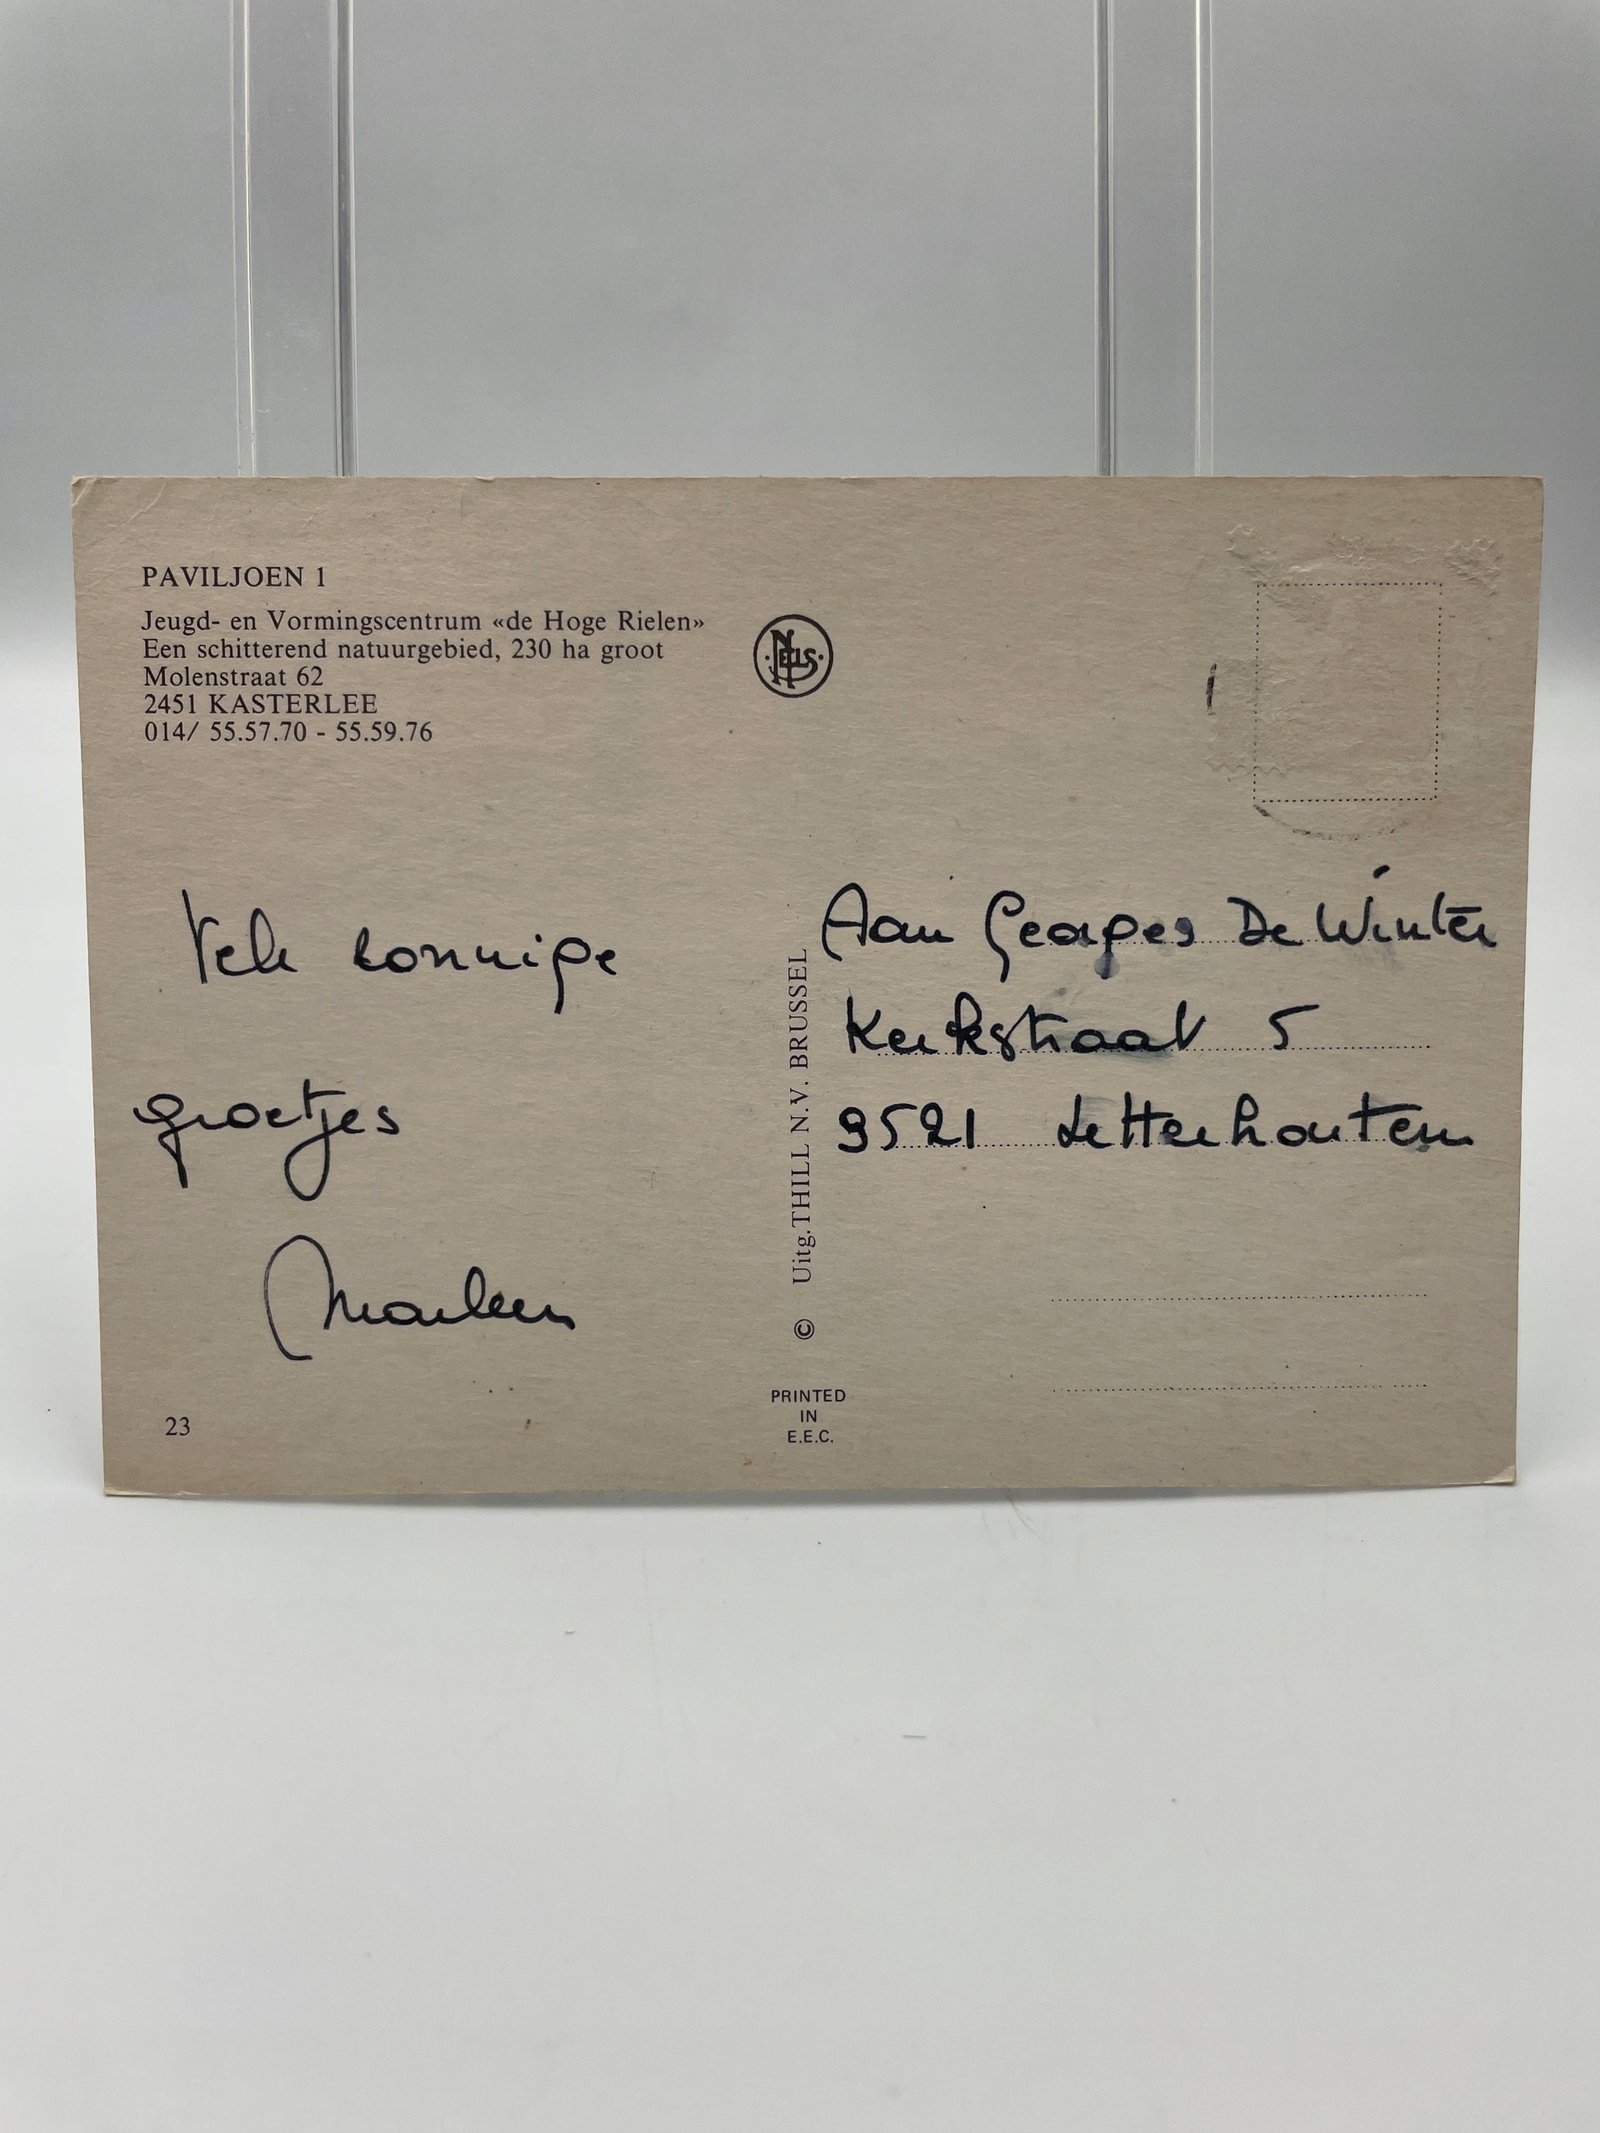 PAVILJOEN 1
Jeugd- en Vormingscentrum «de Hoge Rielen»
Een schitterend natuurgebied, 230 ha groot
Molenstraat 62
2451 KASTERLEE
014/ 55.57.70 - 55.59.76
NELS
Vele zonnige
groetjes
Marleen
23
© Uitg. THILL N.V. BRUSSEL
PRINTED
IN
E.E.C.
Aan Georges De Winter
Kerkstraat 5
9521 Letterhoutem